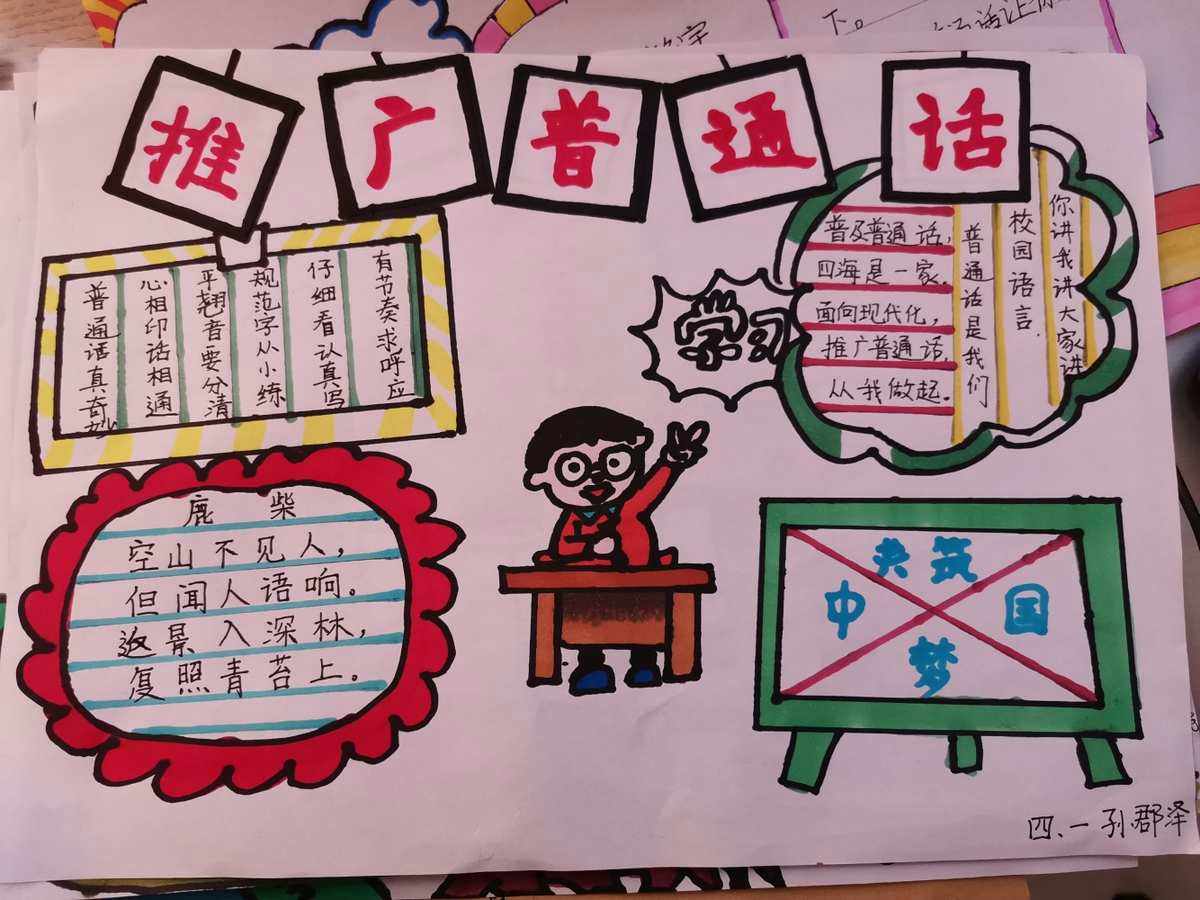 推广普通话
普通话真奇妙
心相印话相通
平翘音要分清
规范字从小练
仔细看认真写
有节奏求呼应
学习
普及普通话,
四海是一家。
面向现代化,
推广普通话,
从我做起。
普通话是我们
校园语言.
你讲我讲大家讲
鹿柴
空山不见人,
但闻人语响。
返景入深林,
复照青苔上。
共筑
中国
梦
四、一 孙郡泽